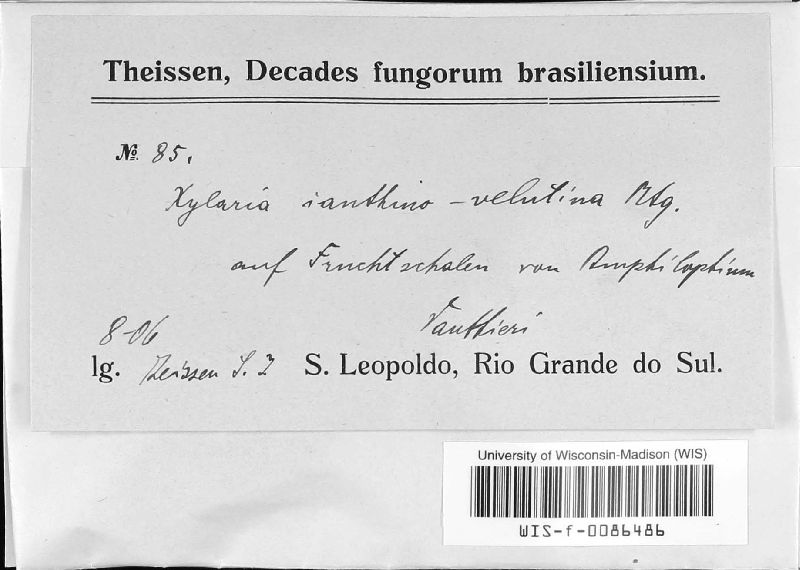 Theissen, Decades fungorum brasiliensium.
No. 85.
Xylaria ianthino-velutina Mtg.
auf Fruchtschalen von Amphiloptium
Vauttieri
8-06
lg. Theissen S. J. S. Leopoldo, Rio Grande do Sul.
University of Wisconsin-Madison (WIS)
WIS-f-0086486